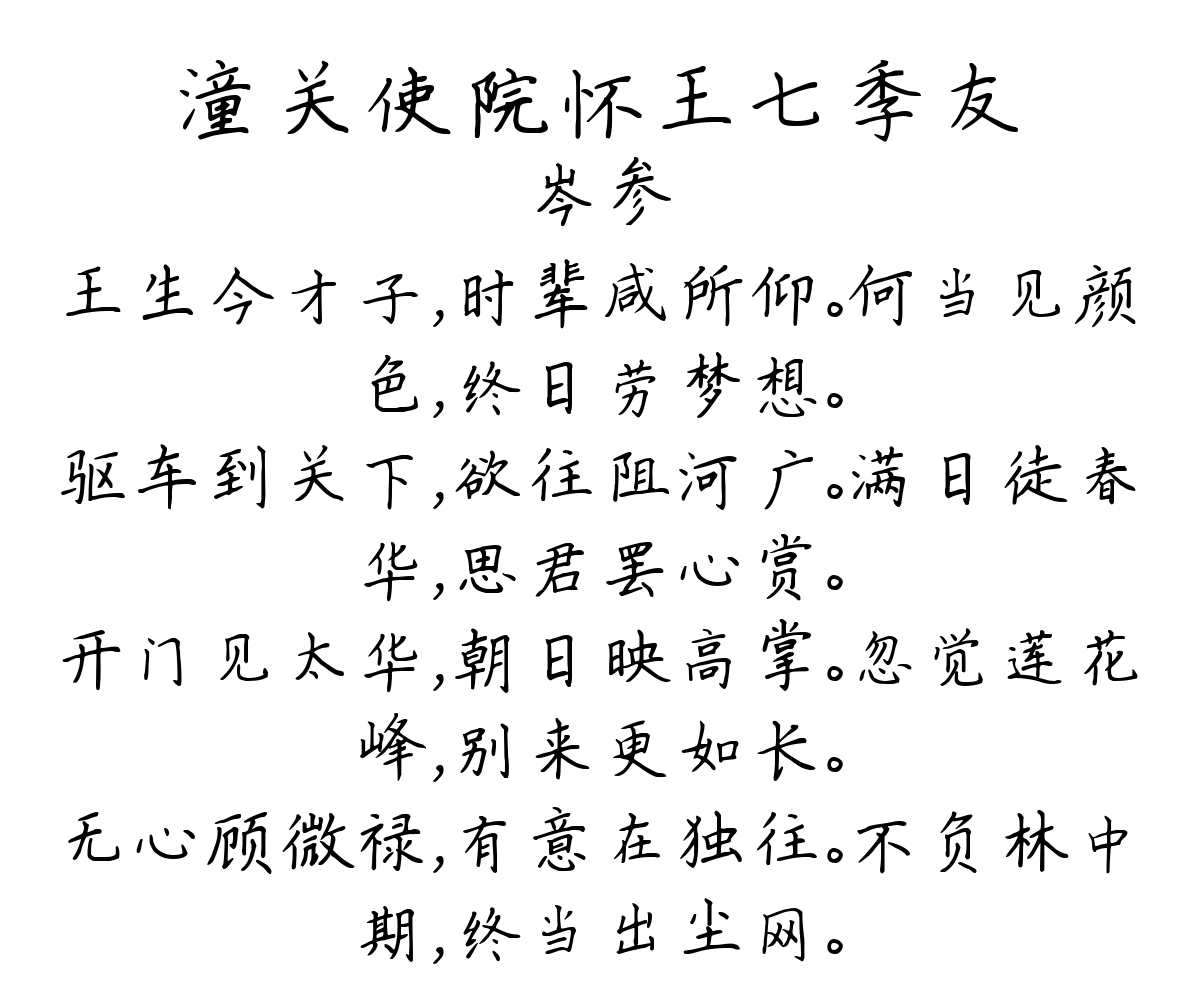 潼关使院怀王七季友
岑参
王生今才子,时辈咸所仰。何当见颜
色,终日劳梦想。
驱车到关下,欲往阻河广。满日徒春
华,思君罢心赏。
开门见太华,朝日映高掌。忽觉莲花
峰,别来更如长。
无心顾微禄,有意在独往。不负林中
期,终当出尘网。